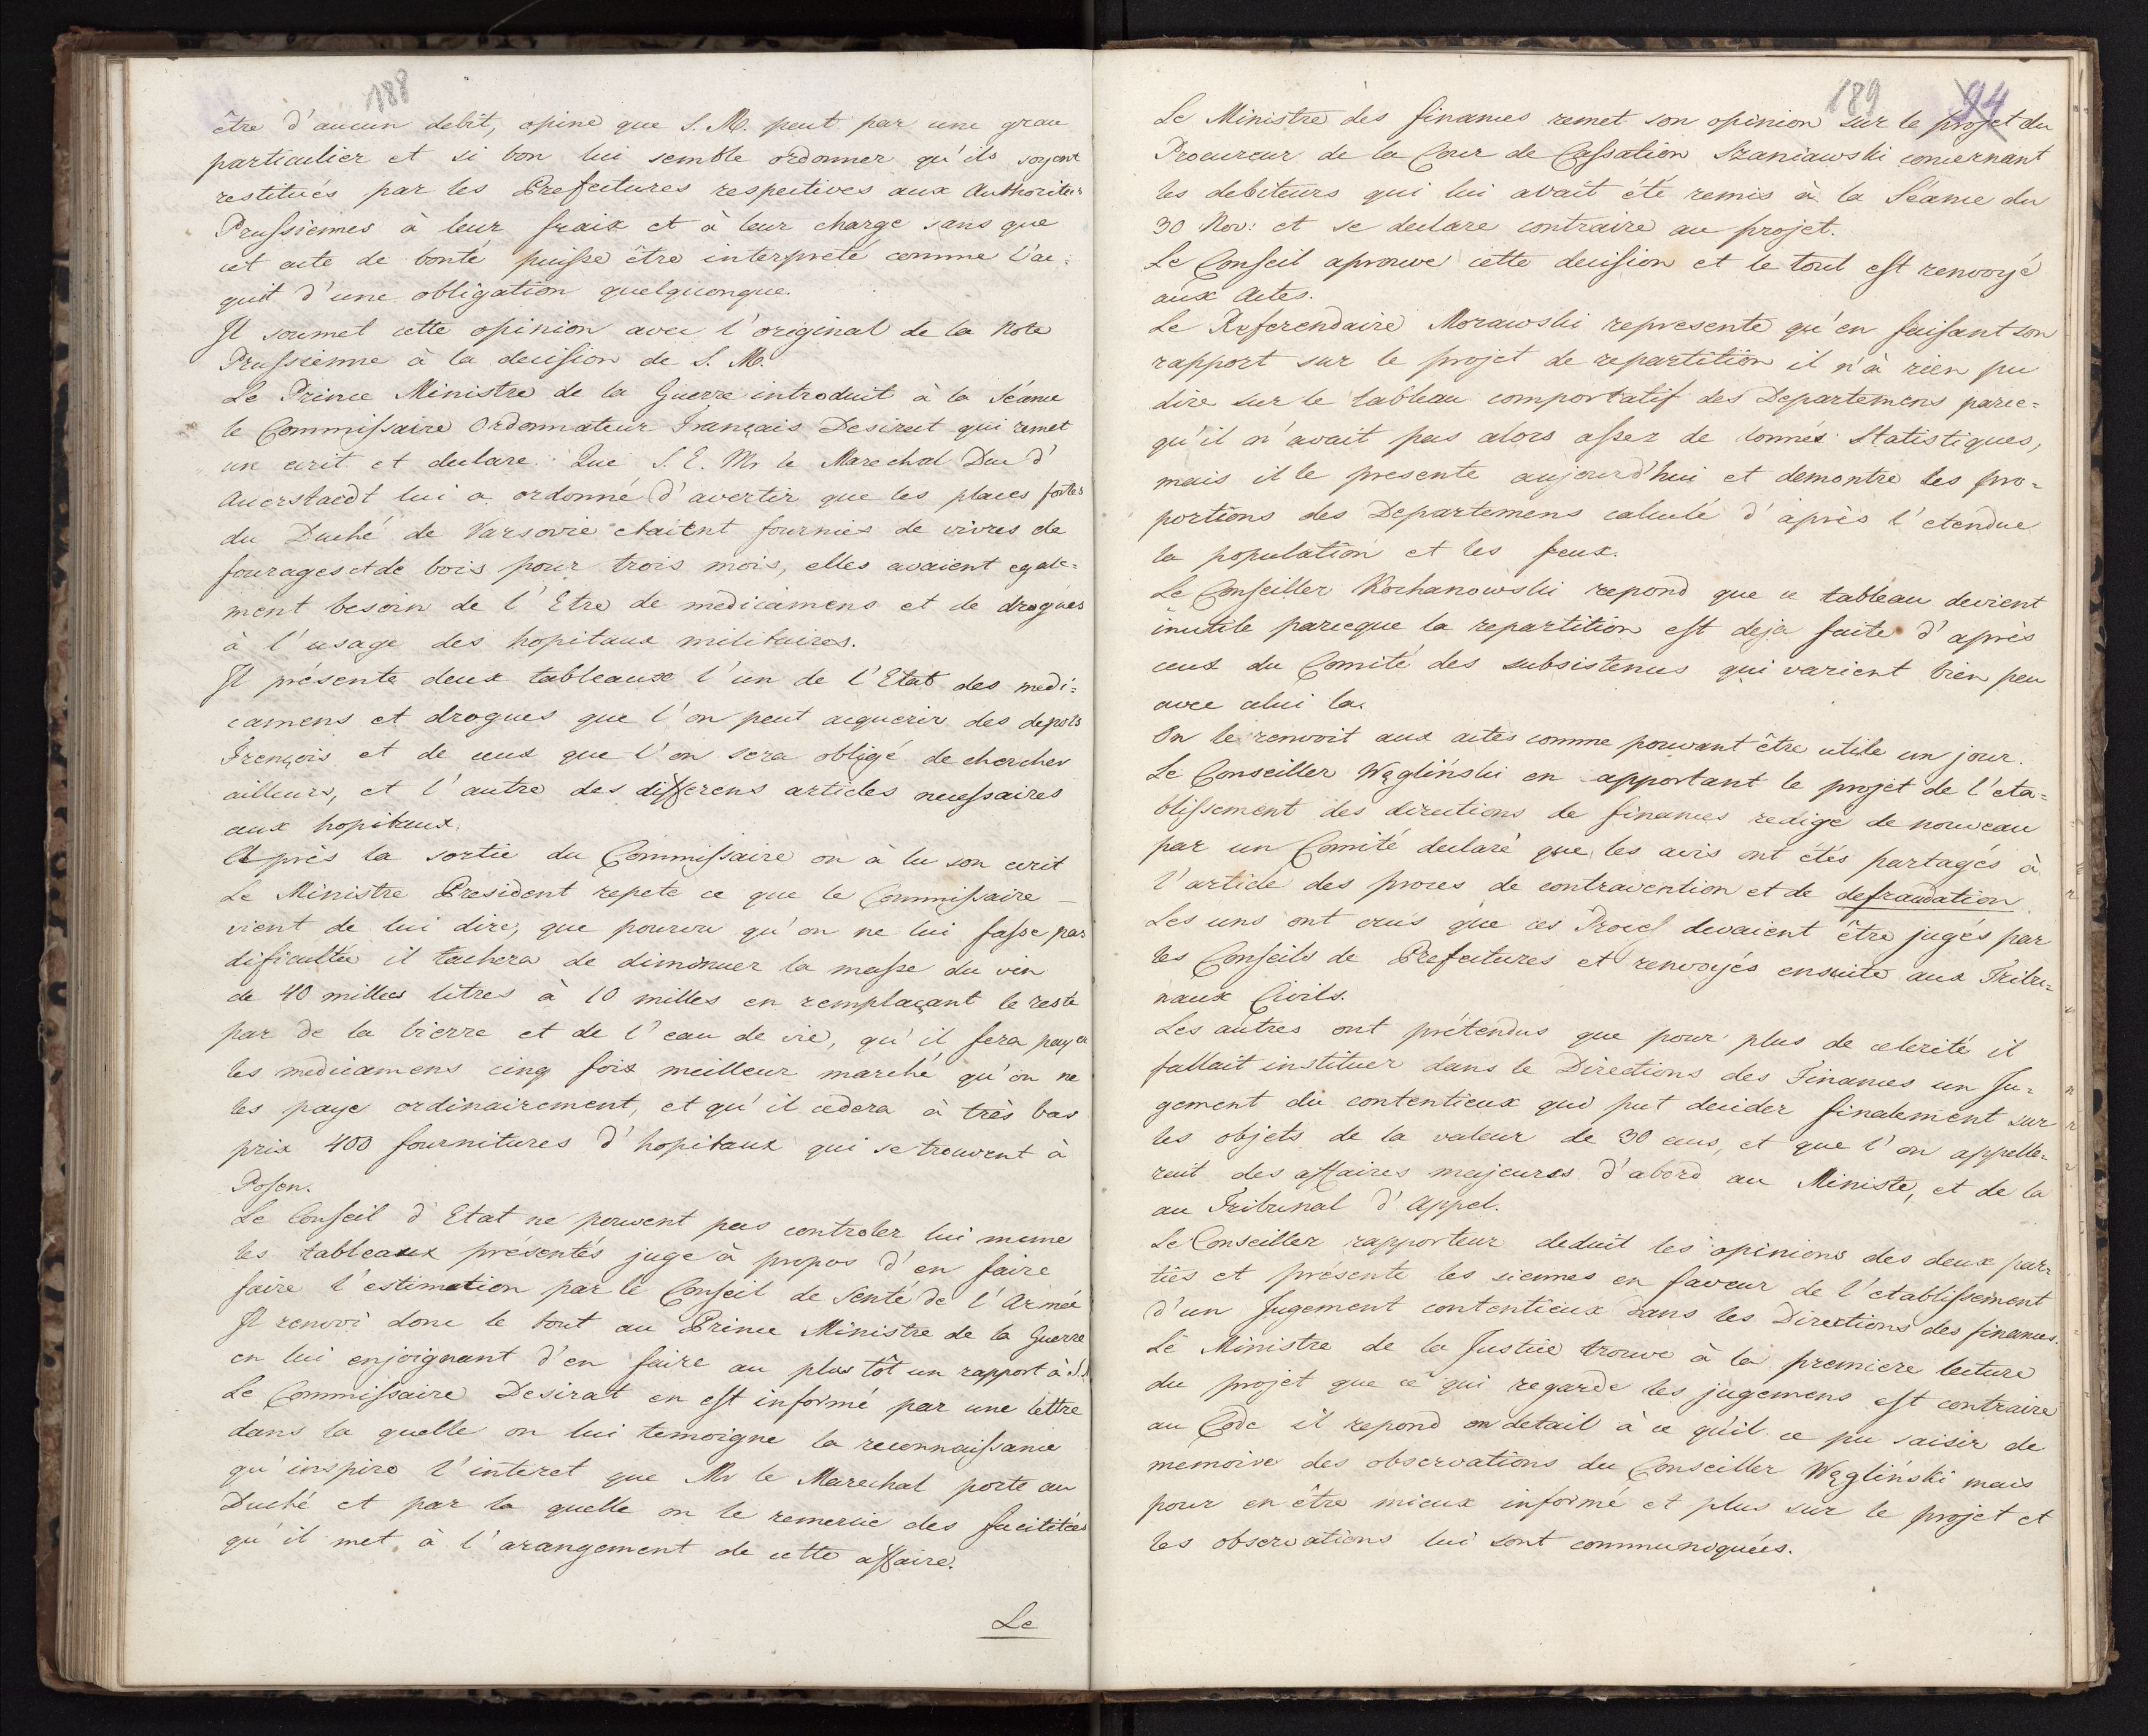 188
être d'aucun debit, opine que S. M. peut par une grau
particulier et si bon lui semble ordonner qu'ils soyent
restitués par les Prefectures respectives aux Authorites
Prussiennes à leur fraix et à leur charge sans que
cet acte de bonté puisse être interpreté comme l'ac-
quit d'une obligation quelquonque.
Il soumet cette opinion avec l'original de la Note
Prussienne à la decision de S. M.
Le Prince Ministre de la Guerre introduit à la Séance
le Commissaire Ordonnateur Français Desirat qui remet
un ecrit et declare. Que S. E. Mr le Marechal Duc d'
Auerstaedt lui a ordonné d'avertir que les places fortes
du Duché de Varsovie etaient fournies de vivres de
fourages et de bois pour trois mois, elles avaient egale=
ment besoin de l'Etre de medicamens et de drogues
à l'usage des hopitaux militaires.
Il présente deux tableaux l'un de l'Etat des medi=
camens et drogues que l'on peut acquerir des depots
Frençois et de ceux que l'on sera obligé de chercher
ailleurs, et l'autre des differens articles necessaires
aux hopitaux.
Après la sortie du Commissaire on à lu son ecrit
Le Ministre President repete ce que le Commissaire —
vient de lui dire, que pourvu qu'on ne lui fasse pas
dificultée il tachera de diminuer la masse du vin
de 40 milles litres à 10 milles en remplaçant le reste
par de la bierre et de l'eau de vie, qu'il fera payer
les medicamens cinq fois meilleur marché qu'on ne
les paye ordinairement, et qu'il cedera à très bas
prix 400 fournitures d'hopitaux qui se trouvent à
Posen.
Le Conseil d'Etat ne pouvent pas controler lui meme
les tableaux présentés juge à propos d'en faire
faire l'estimation par le Conseil de Senté de l'Armée
Il renvoi donc le tout au Prince Ministre de la Guerre
en lui enjoignant d'en faire au plus tôt un rapport à S.
Le Commissaire Desirat en est informé par une lettre
dans la quelle on lui temoigne la reconnaissance
qu'inspire l'interet que Mr le Marechal porte au
Duché et par la quelle on le remercie des facilitées
qu'il met à l'arangement de cette affaire.
Le
189 94
Le Ministre des finances remet son opinion sur le projet du
Procureur de la Cour de Cassation Szaniawski concernant
les debiteurs qui lui avait été remis à la Séance du
30 Nov: et se declare contraire au projet.
Le Conseil aprouve cette decision et le tout est renvoyé
aux Actes.
Le Referendaire Morawski represente qu'en faisant son
rapport sur le projet de repartition il n'à rien pu
dire sur le tableau comportatif des Departemens parce=
qu'il n'avait pas alors assez de données Statistiques,
mais il le presente aujourd'hui et demontre les pro=
portions des Departemens calculé d'après l'etendue
la population et les feux.
Le Conseiller Kochanowski repond que ce tableau devient
inutile parceque la repartition est deja faite d'après
ceux du Comité des subsistences qui varient bien peu
avec celui la.
On le renvoit aux actes comme pouvant être utile un jour.
Le Conseiller Węgliński en apportant le projet de l'eta=
blissement des directions de finances redigé de nouveau
par un Comité declaré que les avis ont étés partagés à
l'article des proces de contravention et de defraudation
Les uns ont crus que ces Proces devaient être jugés par
les Conseils de Prefectures et renvoyés ensuite aux Tribu=
naux Civils.
Les autres ont prétendus que pour plus de celerité il
fallait instituer dans le Directions des Finances un Ju=
gement du contentieux qui put decider finalement sur
les objets de la valeur de 30 ecus, et que l'on appelle=
rait des affaires majeures d'abord au Ministe, et de la
au Tribunal d'Appel.
Le Conseiller rapporteur deduit les opinions des deux par=
ties et présente les siennes en faveur de l'etablissement
d'un Jugement contentieux dans les Directions des finances.
Le Ministre de la Justice trouve à la premiere lecture
du projet que ce qui regarde les jugemens est contraire
au Code il repond en detail à ce qu'il a pu saisir de
memoire des observations du Conseiller Węgliński mais
pour en être mieux informé et plus sur le projet et
les observations lui sont communiquées.